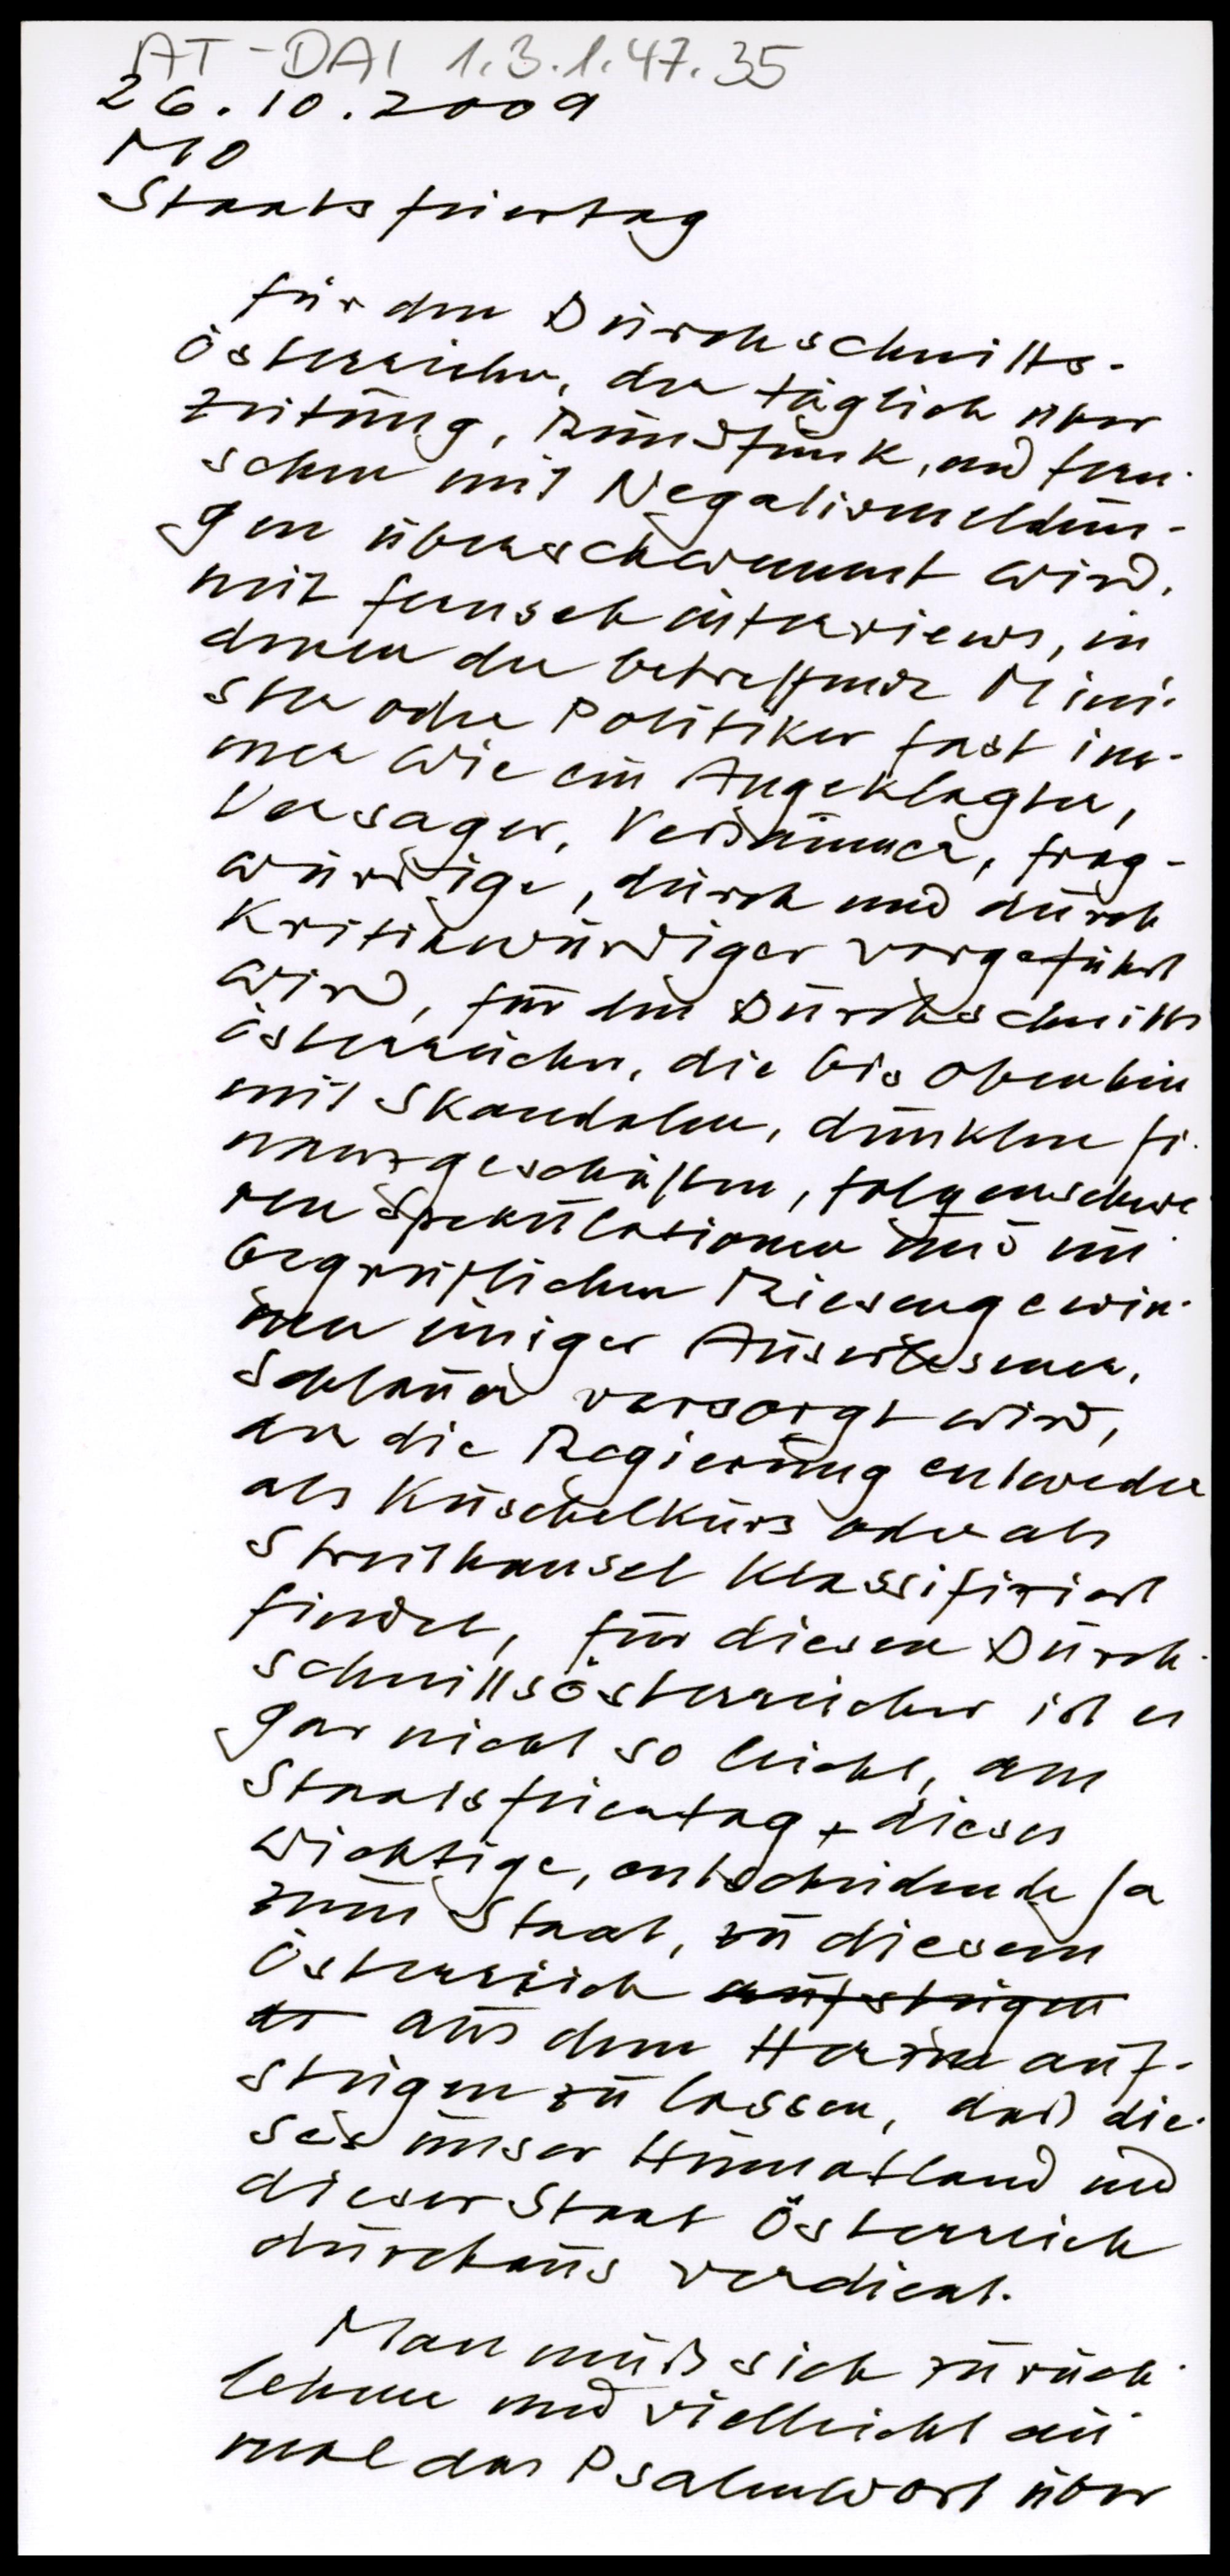 AT-DAI 1.3.1.47.35
26.10.2009
MO
Staatsfeiertag
Für den Durchschnitts-
österreicher, der täglich über
Zeitung, Rundfunk, und Fern-
sehen mit Negativmeldun-
gen überschwemmt wird,
mit Fernsehinterviews, in
denen der betreffende Mini-
ster oder Politiker fast im-
mer wie ein Angeklagter,
Versager, Versäumer, frag-
würdige, durch und durch
Kritikwürdiger vorgeführt
wird, für den Durchschnitts
österreicher, die bis obenhin
mit Skandalen, dunklen Fi-
nanzgeschäften, folgenschwe
ren Spekulationen und un-
begreiflichen Riesengewin-
nen einiger Auserlesener,
Schlauer versorgt wird,
der die Regierung entweder
als Kuschelkurs oder als
Streithansel klassifiziert
findet, für diesen Durch-
schnittsösterreicher ist es
gar nicht so leicht, am
Staatsfeiertag dieses
wichtige, entscheidende Ja
zum Staat, zu diesem
Österreich aufsteigen
aus dem Herzen auf-
steigen zu lassen, daß die-
ses unser Heimatland und
dieser Staat Österreich
durchaus verdient.
Man muß sich zurück-
lehnen und vielleicht ein
mal das Psalmwort über